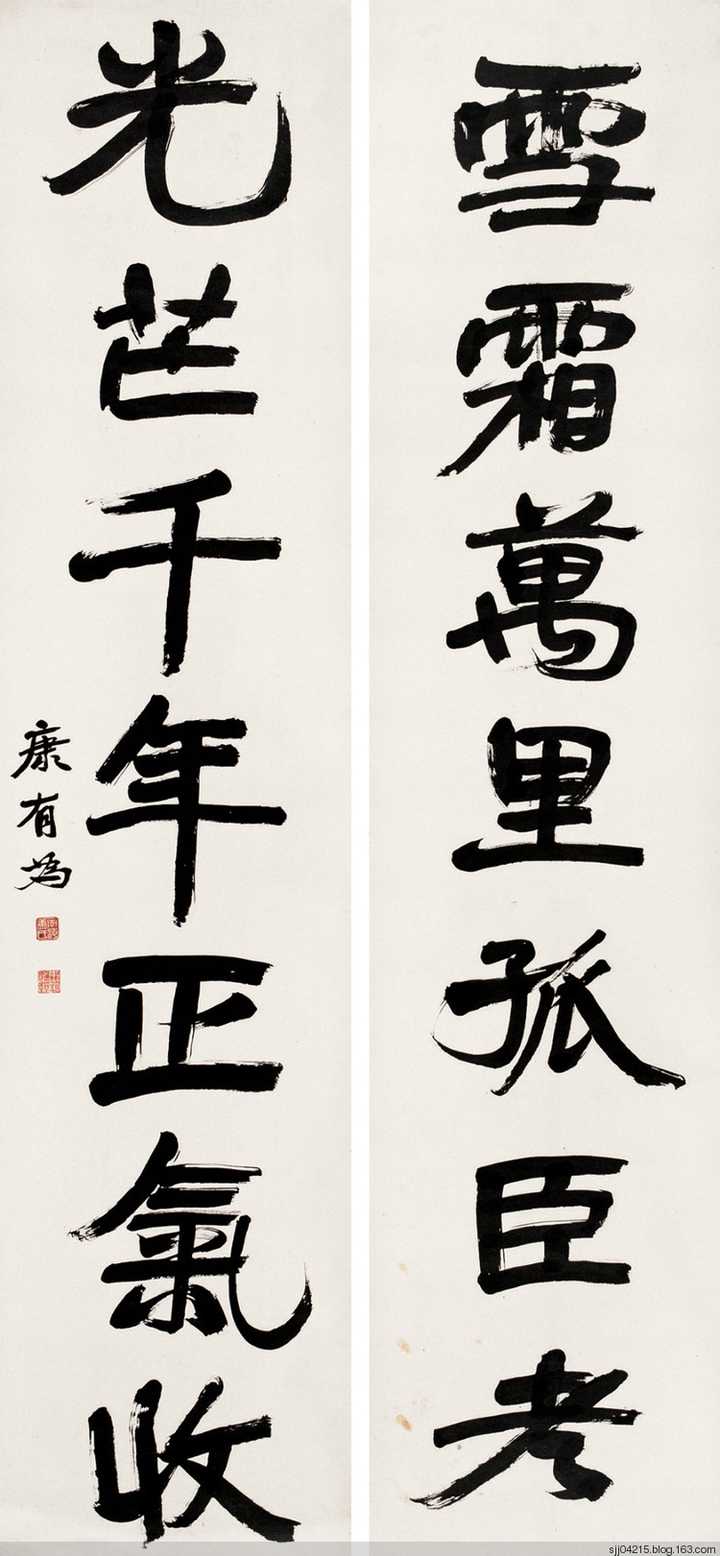 雪霜萬里孤臣老
光芒千年正氣收
康有為
sjj04215.blog.163.com